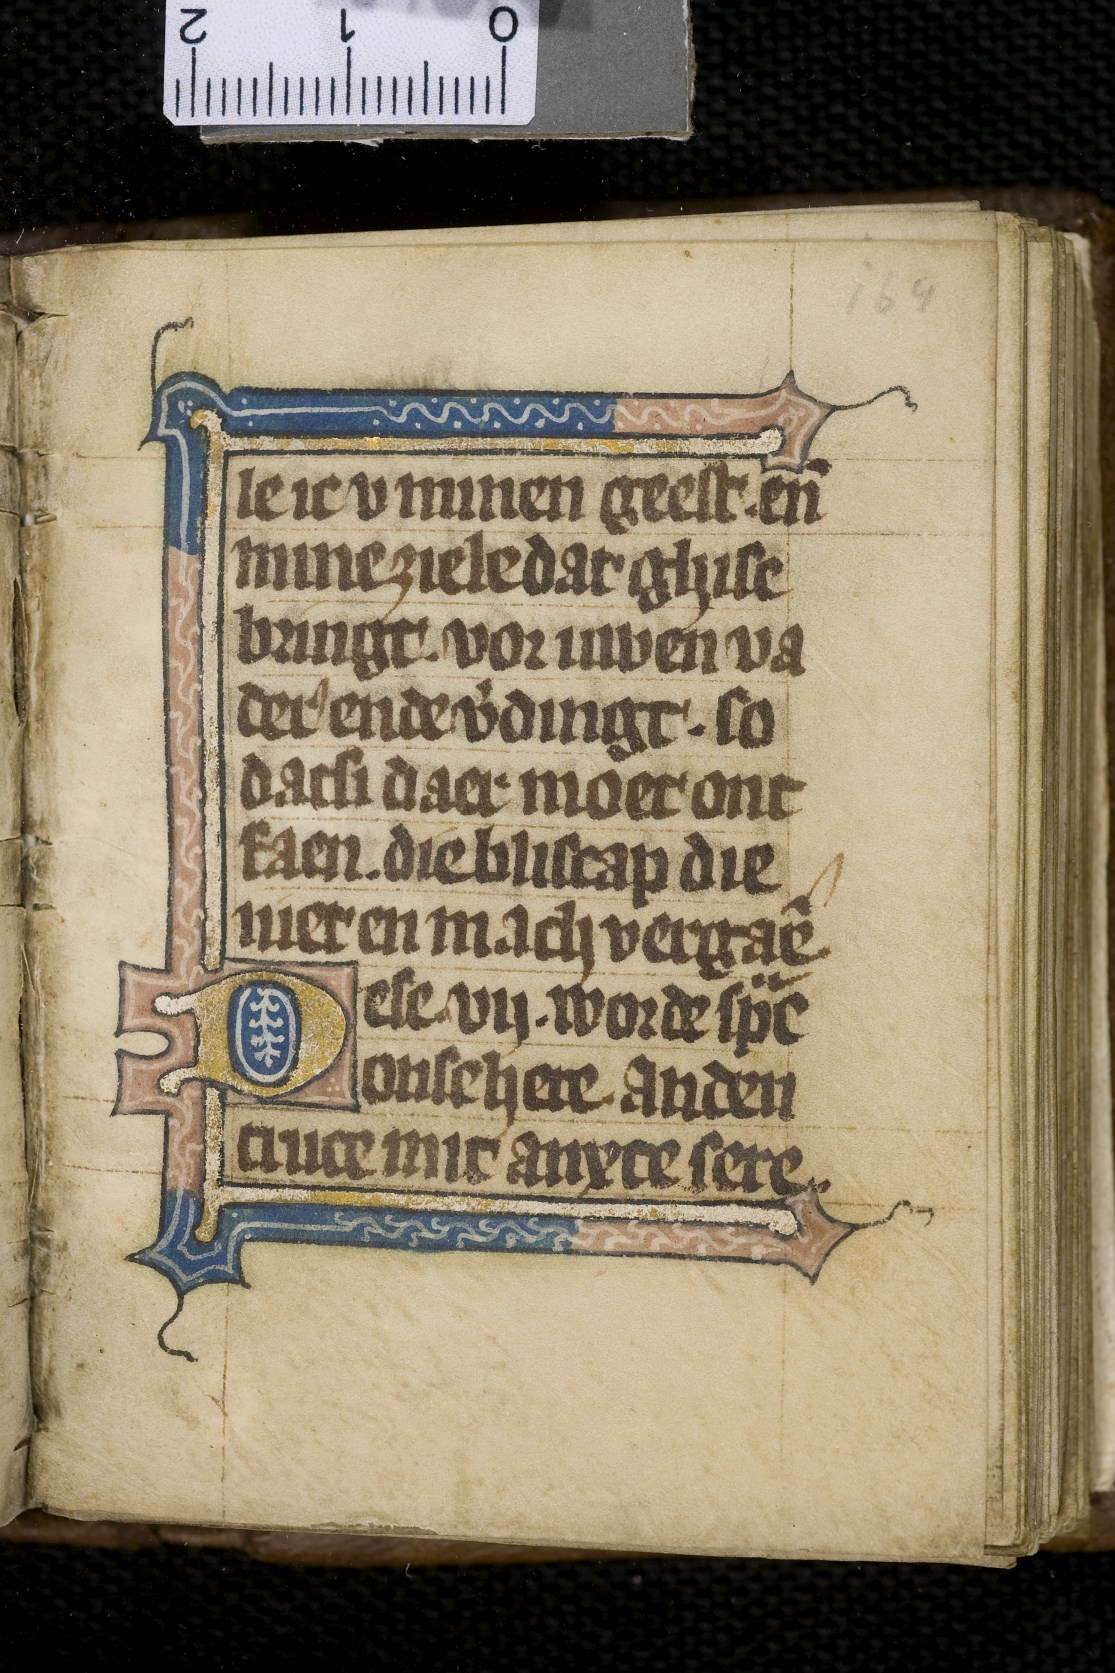 2 1 0
164
le ic v minen geest. en̄
mine ziele dat ghise
bringt. vor uwen va
der ende v̓dingt. so
datsi daer moet ont
faen. die bliscap die
niet en mach vergaē
Dese. vij. worde sp̄c
onse here. an den
cruce mit anxte sere.